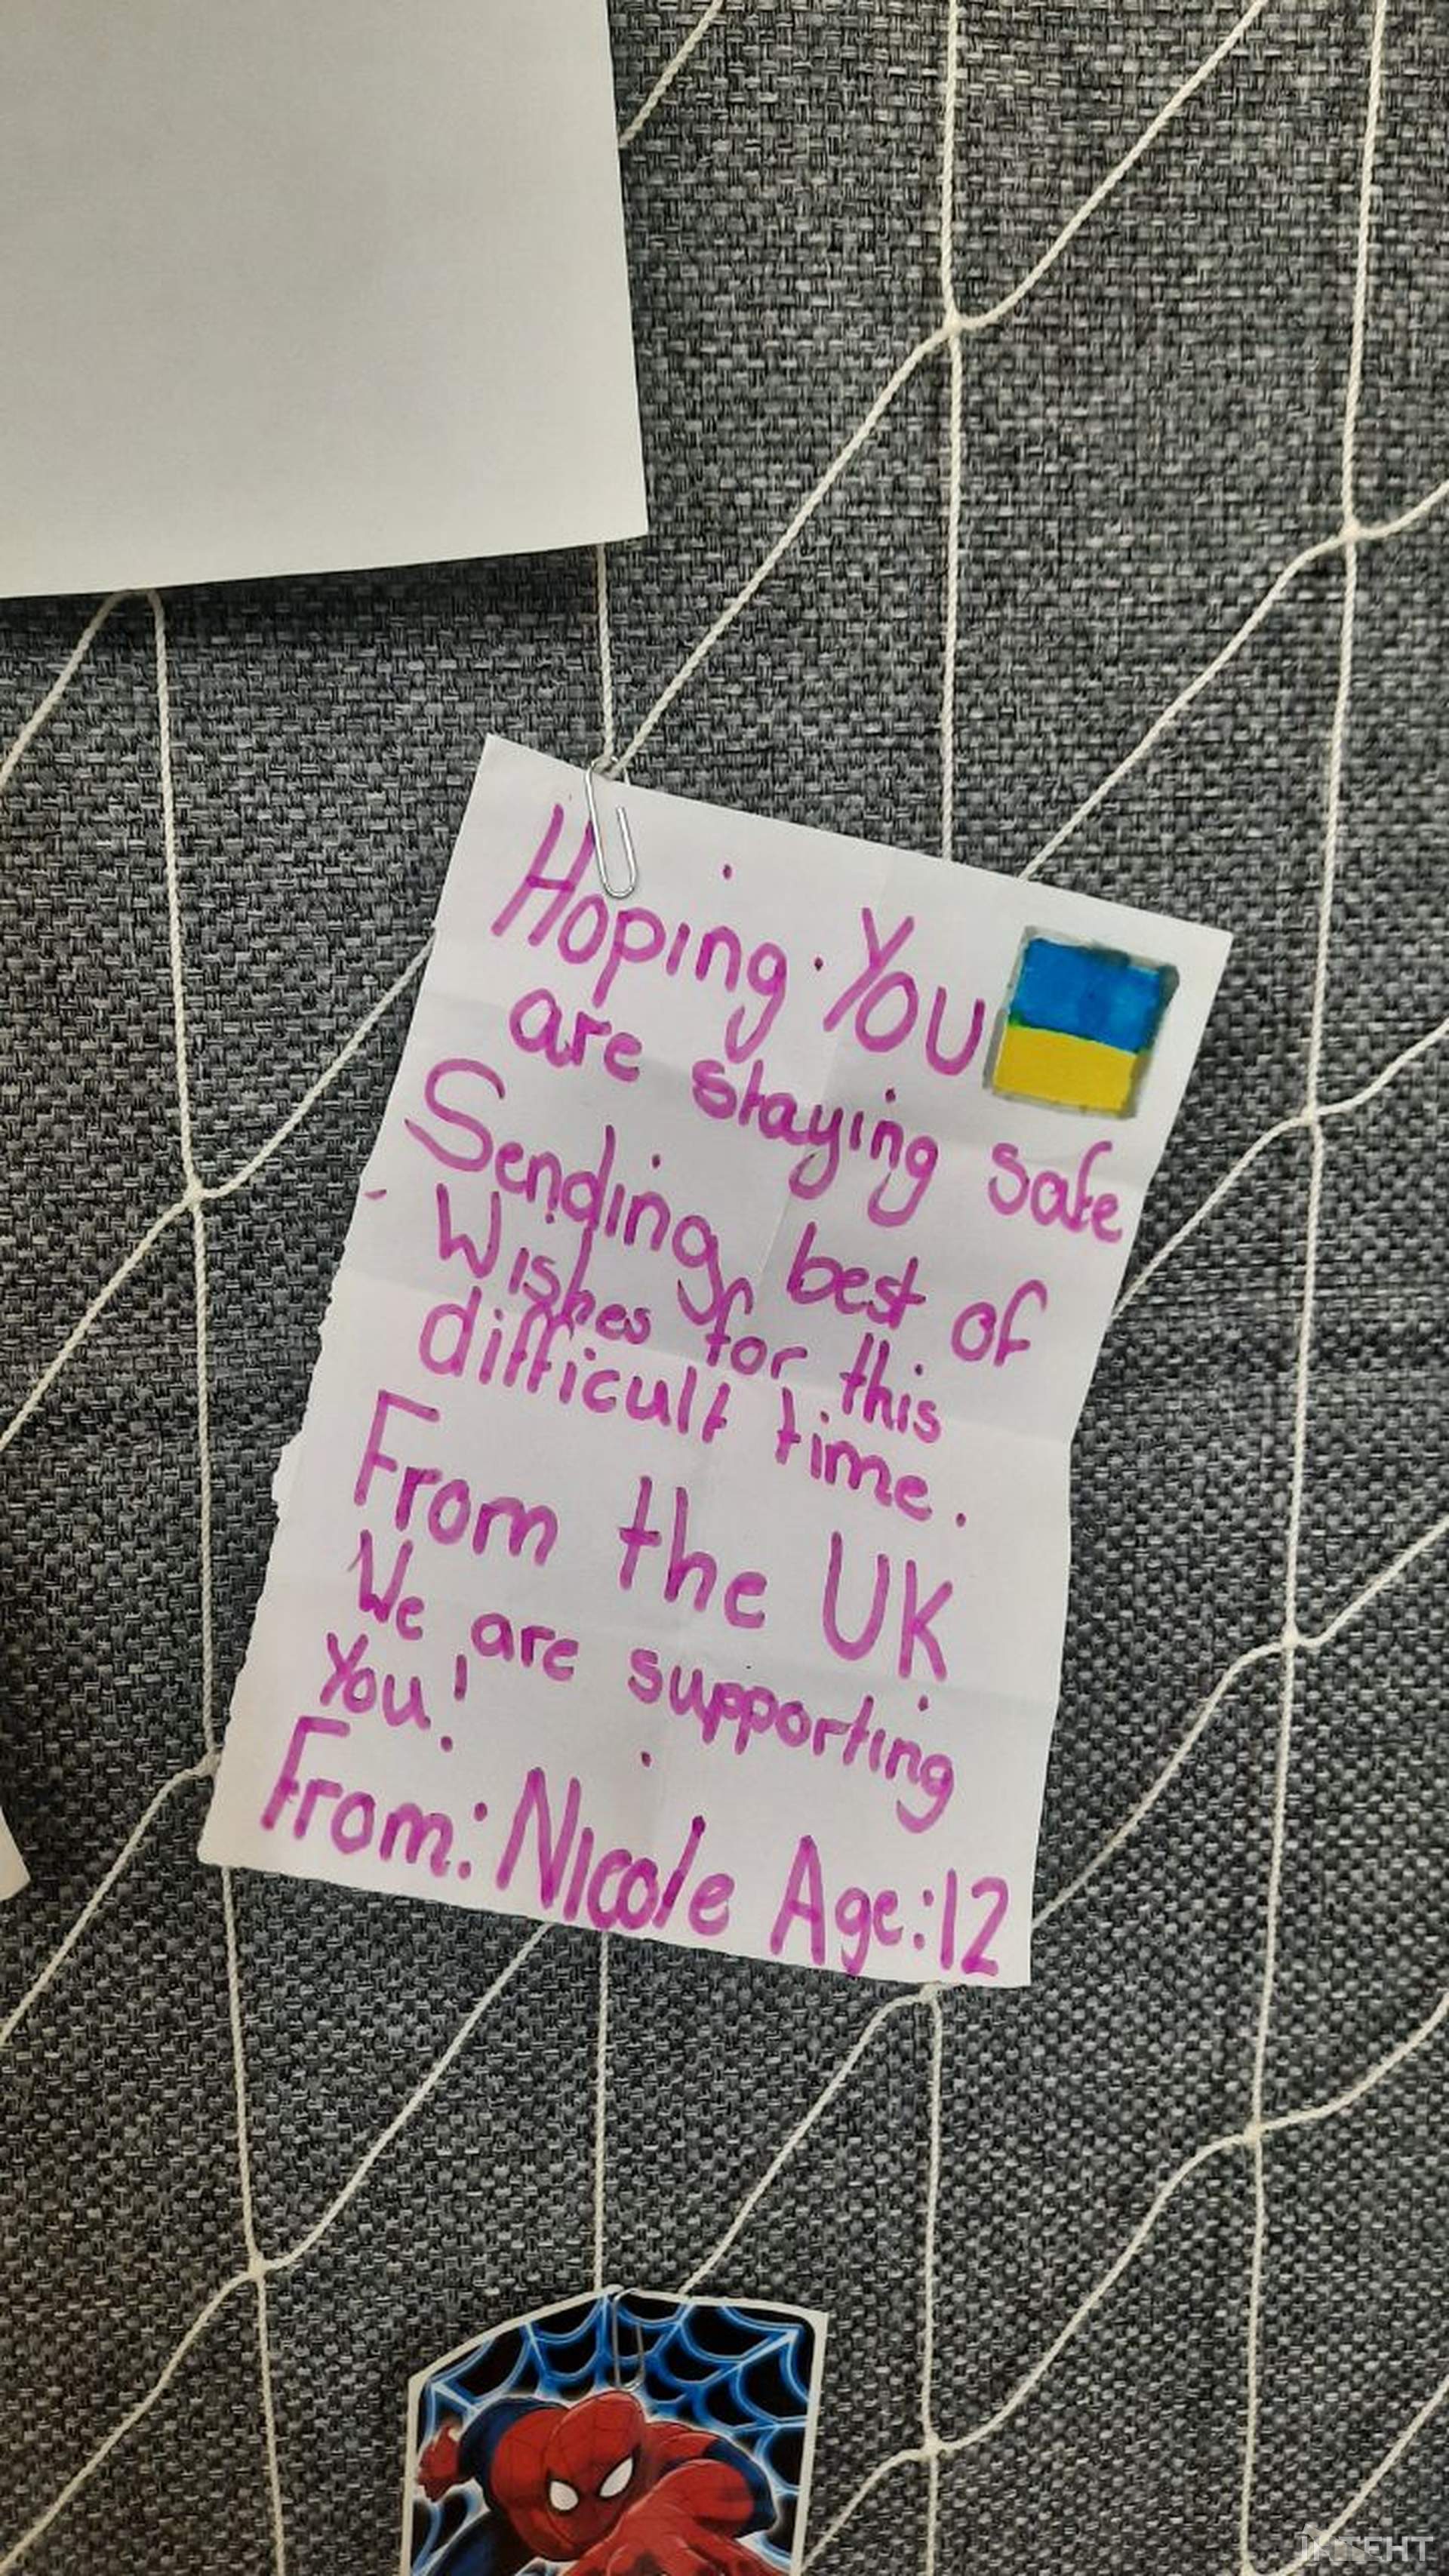 Hoping You
are staying safe
Sending best of
Wishes for this
difficult time.
From the UK
We are supporting
You!
From: Nicole Age:12
ІНТЕНТ